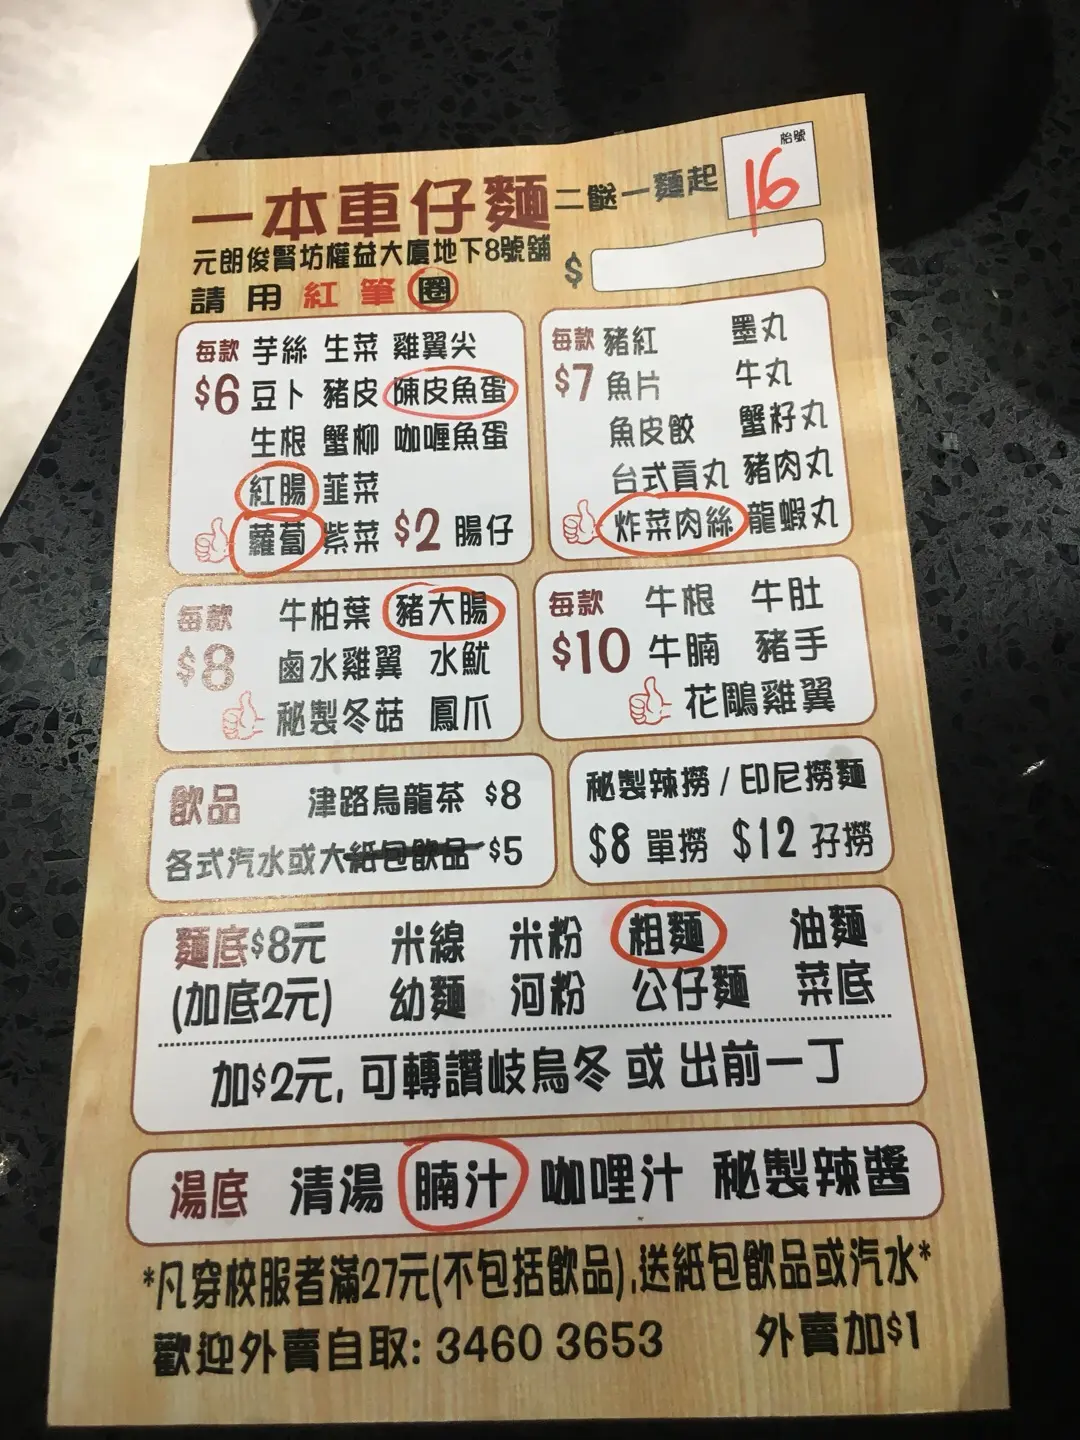 一本車仔麵 二餸一麵起
枱號
16
元朗俊賢坊權益大廈地下8號舖
$
請用紅筆圈
每款 芋絲 生菜 雞翼尖
$6 豆卜 豬皮 陳皮魚蛋
生根 蟹柳 咖喱魚蛋
紅腸 韮菜
蘿蔔 紫菜 $2 腸仔
每款 豬紅 墨丸
$7 魚片 牛丸
魚皮餃 蟹籽丸
台式貢丸 豬肉丸
炸菜肉絲 龍蝦丸
每款 牛柏葉 豬大腸
$8 鹵水雞翼 水魷
秘製冬菇 鳳爪
每款 牛根 牛肚
$10 牛腩 豬手
花鵰雞翼
飲品 津路烏龍茶 $8
各式汽水或大紙包飲品 $5
秘製辣撈 / 印尼撈麵
$8 單撈 $12 孖撈
麵底$8元 米線 米粉 粗麵 油麵
(加底2元) 幼麵 河粉 公仔麵 菜底
加$2元, 可轉讚岐烏冬 或 出前一丁
湯底 清湯 腩汁 咖哩汁 秘製辣醬
*凡穿校服者滿27元(不包括飲品),送紙包飲品或汽水*
歡迎外賣自取: 3460 3653 外賣加$1